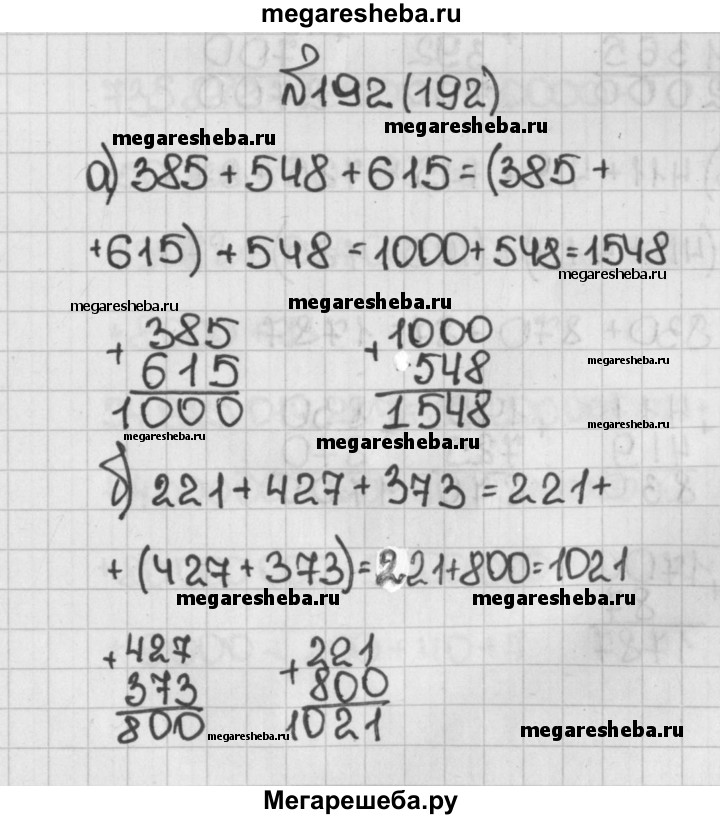 megaresheba.ru
№192 (192)
megaresheba.ru
megaresheba.ru
а) 385 + 548 + 615 = (385 +
+615) + 548 = 1000 + 548 = 1548
megaresheba.ru
megaresheba.ru
+ 385
615
1000
+ 1000
548
1548
megaresheba.ru
megaresheba.ru
megaresheba.ru
megaresheba.ru
б) 221 + 427 + 373 = 221 +
+ (427 + 373) = 221 + 800 = 1021
megaresheba.ru
megaresheba.ru
+ 427
373
800
+ 221
800
1021
megaresheba.ru
megaresheba.ru
Мегарешеба.ру